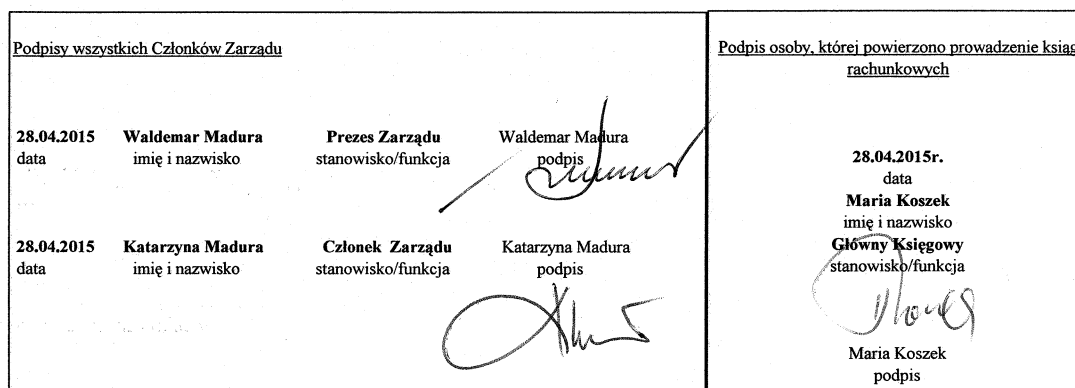 Podpisy wszystkich Członków Zarządu
28.04.2015 Waldemar Madura Prezes Zarządu Waldemar Madura
data imię i nazwisko stanowisko/funkcja podpis
28.04.2015 Katarzyna Madura Członek Zarządu Katarzyna Madura
data imię i nazwisko stanowisko/funkcja podpis
Podpis osoby, której powierzono prowadzenie ksiąg
rachunkowych
28.04.2015r.
data
Maria Koszek
imię i nazwisko
Główny Księgowy
stanowisko/funkcja
Maria Koszek
podpis